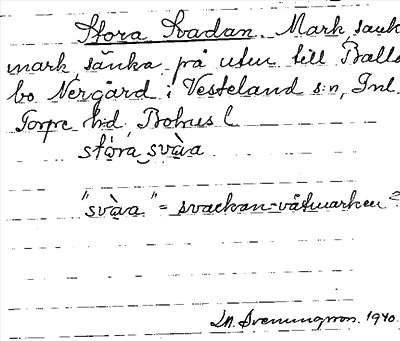 Stora Svadan. Mark sank
mark, sänka på utm. till Balls
bo Nergård i Vesteland s:n, Inl.
Torpe h:d, Bohus l
stóra svàa
"svàa" = svackan = våtmarken?
Svenungsson. 1940.